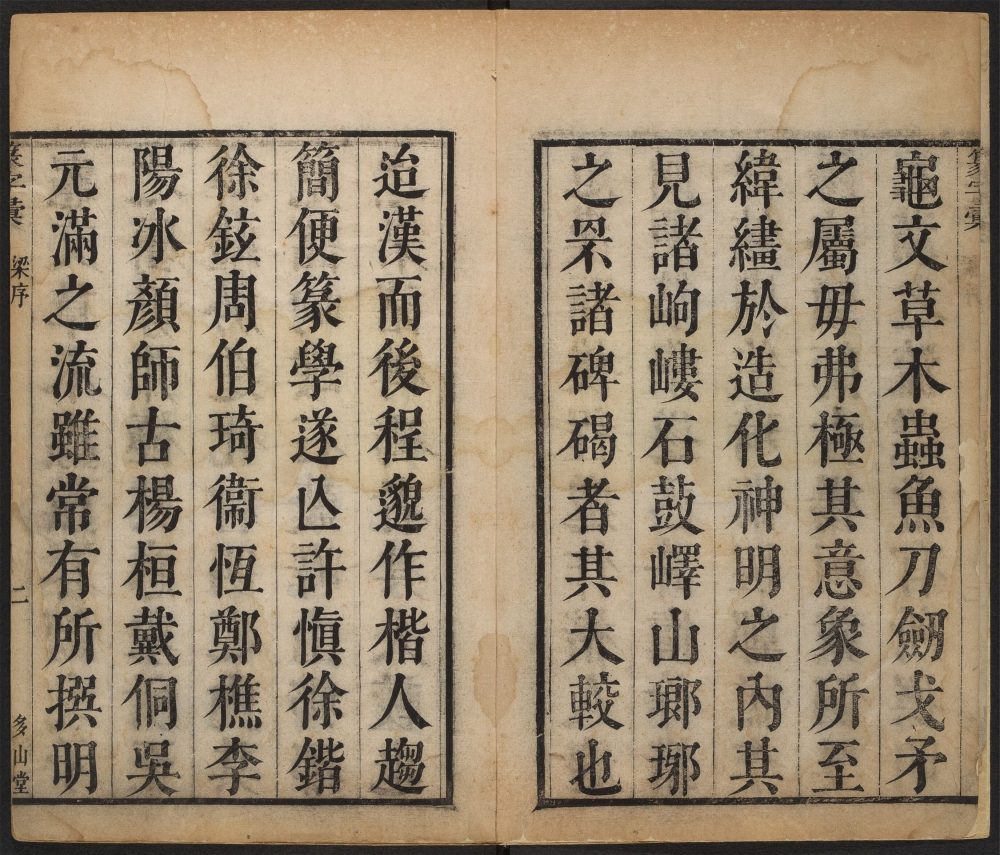 龜文草木蟲魚刀劒戈矛
之屬毋弗極其意象所至
緯繣於造化神明之內其
見諸岣嶁石鼓嶧山瑯琊
之罘諸碑碣者其大較也
迨漢而後程邈作楷人趨
簡便篆學遂亾許愼徐鍇
徐鉉周伯琦衞恆鄭樵李
陽冰顏師古楊桓戴侗吳
元滿之流雖常有所撰明
篆字彙 梁序 二 多山堂